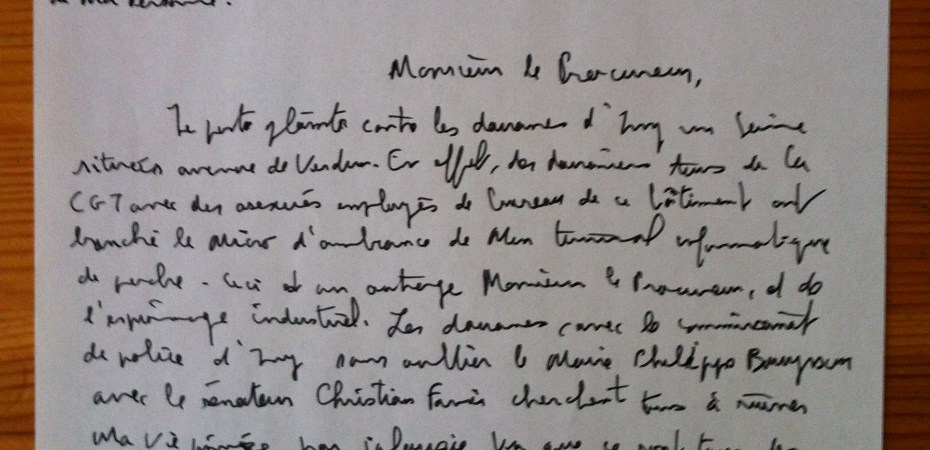 Monsieur le Procureur,
Je porte plainte contre les douanes d'Ivry sur Seine
situées avenue de Verdun. En effet, des douaniers tous de la
CGT avec des asexués employés de bureau de ce bâtiment ont
branché le micro d'ambiance de mon terminal informatique
de poche. Ceci est un outrage Monsieur le Procureur, et de
l'espionnage industriel. Les douanes (avec le commissariat
de police d'Ivry sans oublier le Maire Philippe
avec le sénateur Christian cherchent tous à ruiner
ma vie privée par jalousie